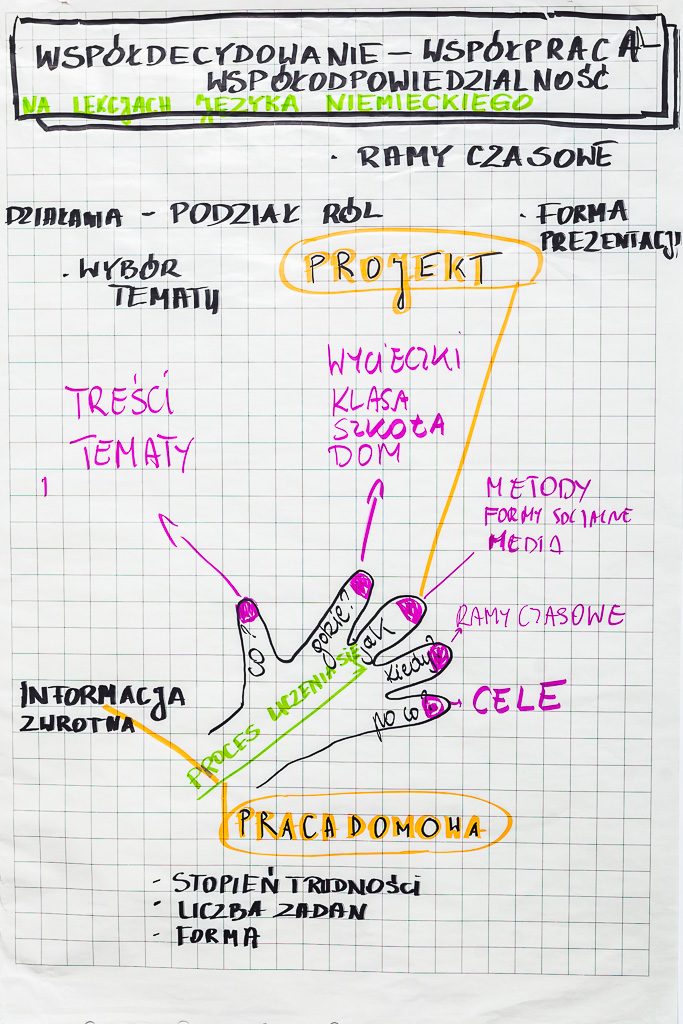 WSPÓŁDECYDOWANIE – WSPÓŁPRACA
WSPÓŁODPOWIEDZIALNOŚĆ
NA LEKCJACH JĘZYKA NIEMIECKIEGO
· RAMY CZASOWE
DZIAŁANIA – PODZIAŁ RÓL
· FORMA
PREZENTACJI
· WYBÓR
TEMATU
PROJEKT
WYCIECZKI
KLASA
SZKOŁA
DOM
TREŚCI
TEMATY
METODY
FORMY SOCJALNE
MEDIA
RAMY CZASOWE
CELE
co?
gdzie?
jak
kiedy?
po co?
PROCES UCZENIA SIĘ
INFORMACJA
ZWROTNA
PRACA DOMOWA
- STOPIEŃ TRUDNOŚCI
- LICZBA ZADAN
- FORMA